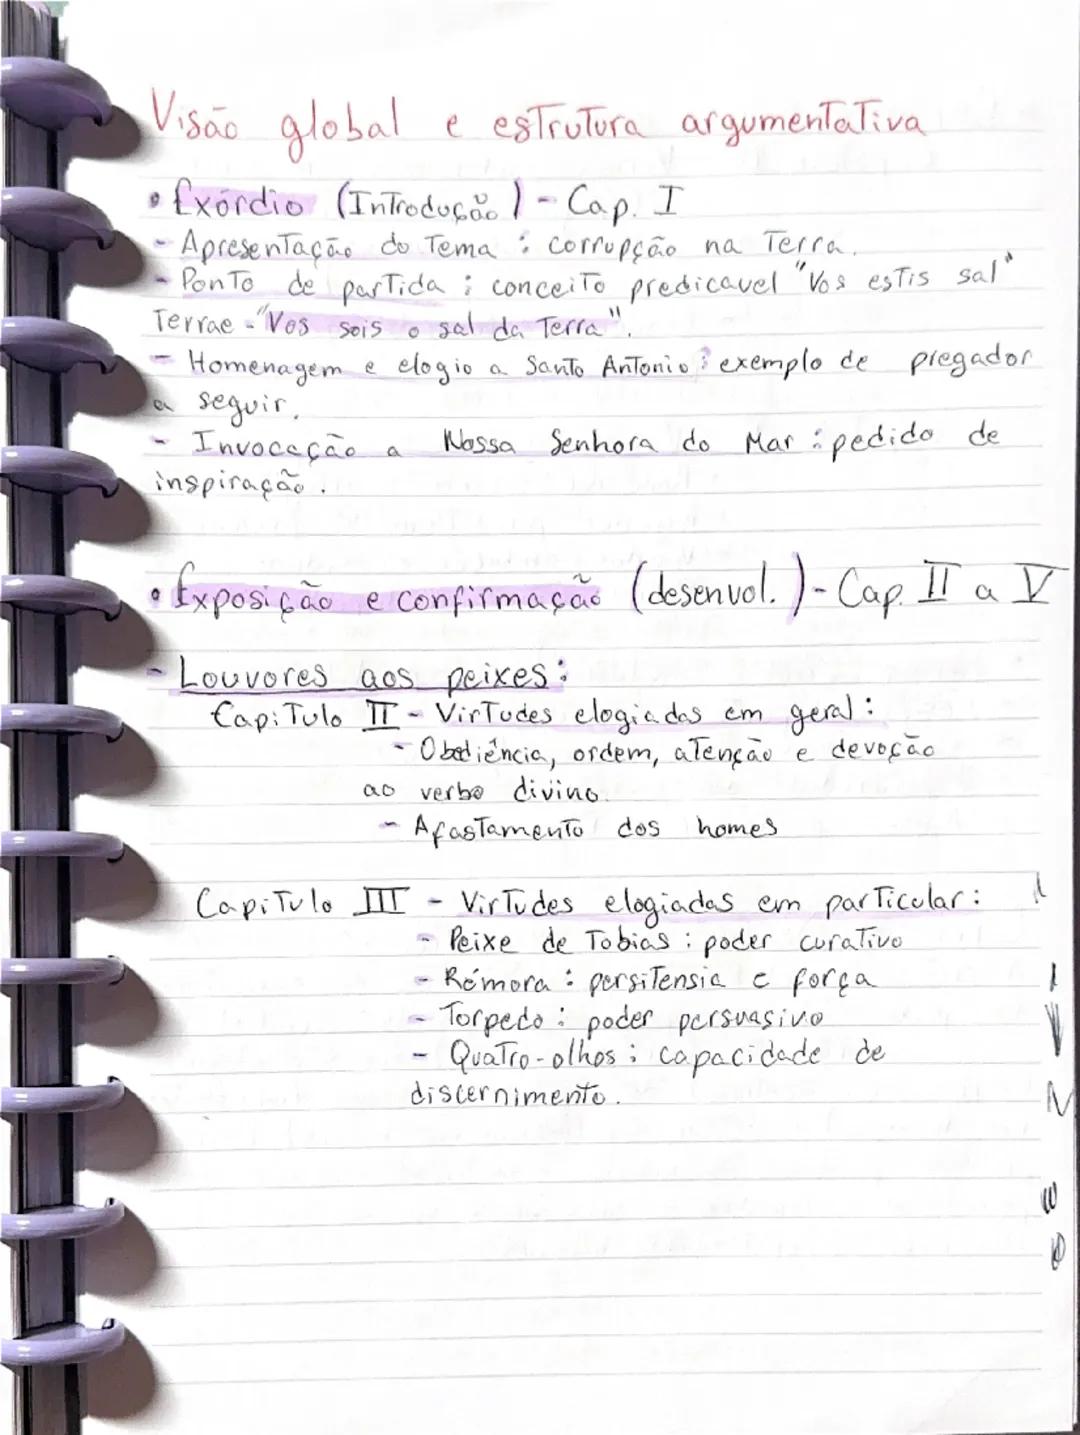 Visão global e estrutura argumentativa
• Exórdio (Introdução) - Cap. I
- Apresentação do Tema : corrupção na Terra.
- Ponto de partida : conceito predicavel "Vos estis sal
Terrae - "Vos sois o sal da Terra".
- Homenagem e elogio a Santo Antonio : exemplo de pregador
a seguir.
- Invocação a Nossa Senhora do Mar : pedido de
inspiração.
• Exposição e confirmação (desenvol.) - Cap. II a V
- Louvores aos peixes :
Capitulo II - Virtudes elogiadas em geral :
- Obediência, ordem, atenção e devoção
ao verbo divino.
- Afastamento dos homes
Capitulo III - Virtudes elogiadas em particular :
- Peixe de Tobias : poder curativo
- Rémora : persitensia e força
- Torpedo : poder persuasivo
- Quatro-olhos : capacidade de
discernimento.